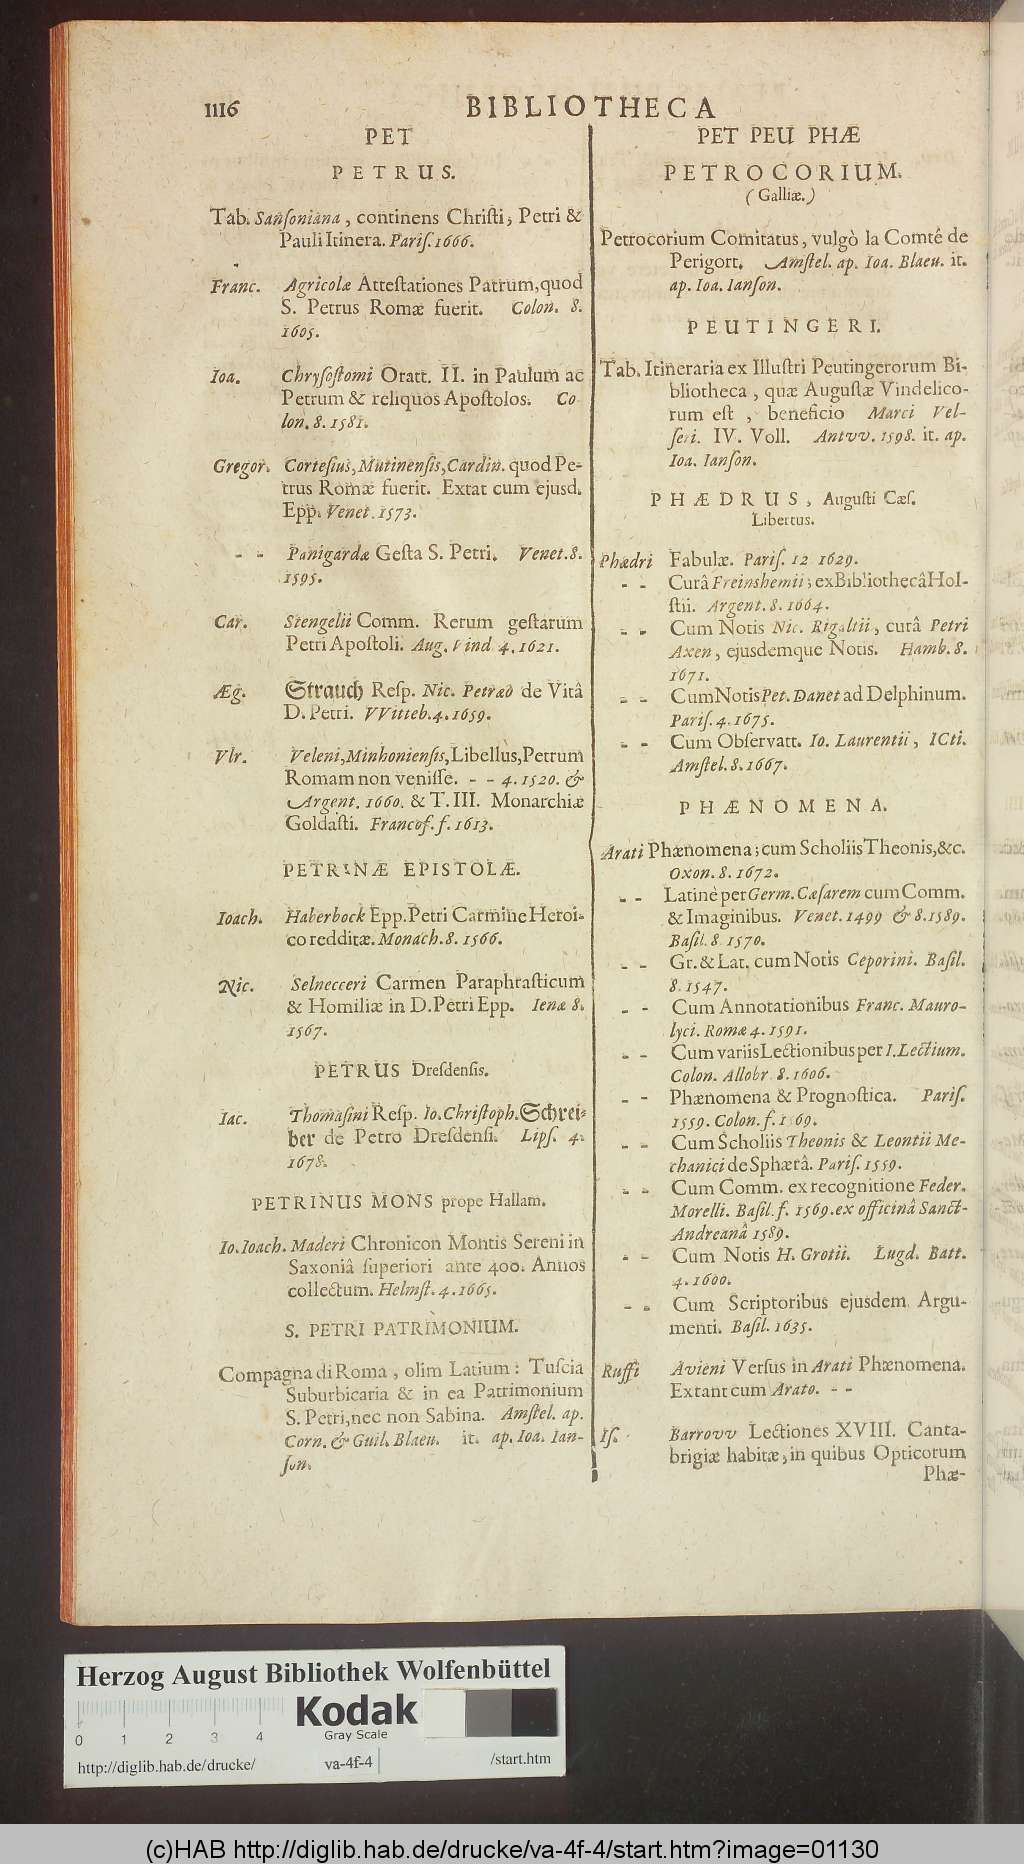 1116 BIBLIOTHECA
PET
PETRUS.
Tab. Sanſoniana, continens Chriſti, Petri &
Pauli Itinera. Pariſ. 1666.
Franc. Agricolæ Atteſtationes Patrum, quod
S. Petrus Romæ fuerit. Colon. 8.
1605.
Ioa. Chryſoſtomi Oratt. II. in Paulum ac
Petrum & reliquos Apoſtolos. Co
lon. 8. 1581.
Gregor. Corteſius, Mutinenſis, Cardin. quod Pe-
trus Romæ fuerit. Extat cum ejusd.
Epp. Venet. 1573.
- - Panigardæ Geſta S. Petri. Venet. 8.
1595.
Car. Stengelii Comm. Rerum geſtarum
Petri Apoſtoli. Aug. Vind 4. 1621.
Æg. Strauch Reſp. Nic. Petræo de Vitâ
D. Petri. VVitteb. 4. 1659.
Vlr. Veleni, Minhonienſis, Libellus, Petrum
Romam non veniſſe. - - 4. 1520. &
Argent. 1660. & T. III. Monarchiæ
Goldaſti. Francof. f. 1613.
PETRINÆ EPISTOLÆ.
Ioach. Haberbock Epp. Petri Carmine Heroi-
co redditæ. Monach. 8. 1566.
Nic. Selnecceri Carmen Paraphraſticum
& Homiliæ in D. Petri Epp. Ienæ 8.
1567.
PETRUS Dresdenſis.
Iac. Thomaſini Reſp. Io. Chriſtoph. Schrei-
ber de Petro Dresdenſi. Lipſ. 4.
1678.
PETRINUS MONS prope Hallam.
Io. Ioach. Maderi Chronicon Montis Sereni in
Saxoniâ ſuperiori ante 400. Annos
collectum. Helmſt. 4. 1665.
S. PETRI PATRIMONIUM.
Compagna di Roma, olim Latium: Tuſcia
Suburbicaria & in ea Patrimonium
S. Petri, nec non Sabina. Amſtel. ap.
Corn. & Guil. Blaeu. it. ap. Ioa. Ian-
ſon.
PET PEU PHÆ
PETROCORIUM.
(Galliæ.)
Petrocorium Comitatus, vulgò la Comtê de
Perigort. Amſtel. ap. Ioa. Blaeu. it.
ap. Ioa. Ianſon.
PEUTINGERI.
Tab. Itineraria ex Illuſtri Peutingerorum Bi-
bliotheca, quæ Auguſtæ Vindelico-
rum eſt, beneficio Marci Vel-
ſeri. IV. Voll. Antvv. 1598. it. ap.
Ioa. Ianſon.
PHÆDRUS, Auguſti Cæſ.
Libertus.
Phædri Fabulæ. Pariſ. 12 1629.
- - Curâ Freinshemii; ex Bibliothecâ Hol-
ſtii. Argent. 8. 1664.
- - Cum Notis Nic. Rigaltii, curâ Petri
Axen, ejusdemque Notis. Hamb. 8.
1671.
- - Cum Notis Pet. Danet ad Delphinum.
Pariſ. 4. 1675.
- - Cum Obſervatt. Io. Laurentii, ICti.
Amſtel. 8. 1667.
PHÆNOMENA.
Arati Phænomena; cum Scholiis Theonis, &c.
Oxon. 8. 1672.
- - Latinè per Germ. Cæſarem cum Comm.
& Imaginibus. Venet. 1499 & 8. 1589.
Baſil. 8 1570.
- - Gr. & Lat. cum Notis Ceporini. Baſil.
8. 1547.
- - Cum Annotationibus Franc. Mauro-
lyci. Romæ 4. 1591.
- - Cum variis Lectionibus per I. Lectium.
Colon. Allobr. 8. 1606.
- - Phænomena & Prognoſtica. Pariſ.
1559. Colon. f.
- - Cum Scholiis Theonis & Leontii Me-
chanici de Sphærâ. Pariſ. 1559.
- - Cum Comm. ex recognitione Feder.
Morelli. Baſil. f. 1569. ex officinâ Sanct-
Andreanâ 1589.
- - Cum Notis H. Grotii. Lugd. Batt.
4. 1600.
- - Cum Scriptoribus ejusdem Argu-
menti. Baſil. 1635.
Ruffi Avieni Verſus in Arati Phænomena.
Extant cum Arato. - -
Iſ. Barrovv Lectiones XVIII. Canta-
brigiæ habitæ, in quibus Opticorum
Phæ-
Herzog August Bibliothek Wolfenbüttel
Kodak
Gray Scale
0 1 2 3 4
http://diglib.hab.de/drucke/ va-4f-4 /start.htm
(c)HAB http://diglib.hab.de/drucke/va-4f-4/start.htm?image=01130